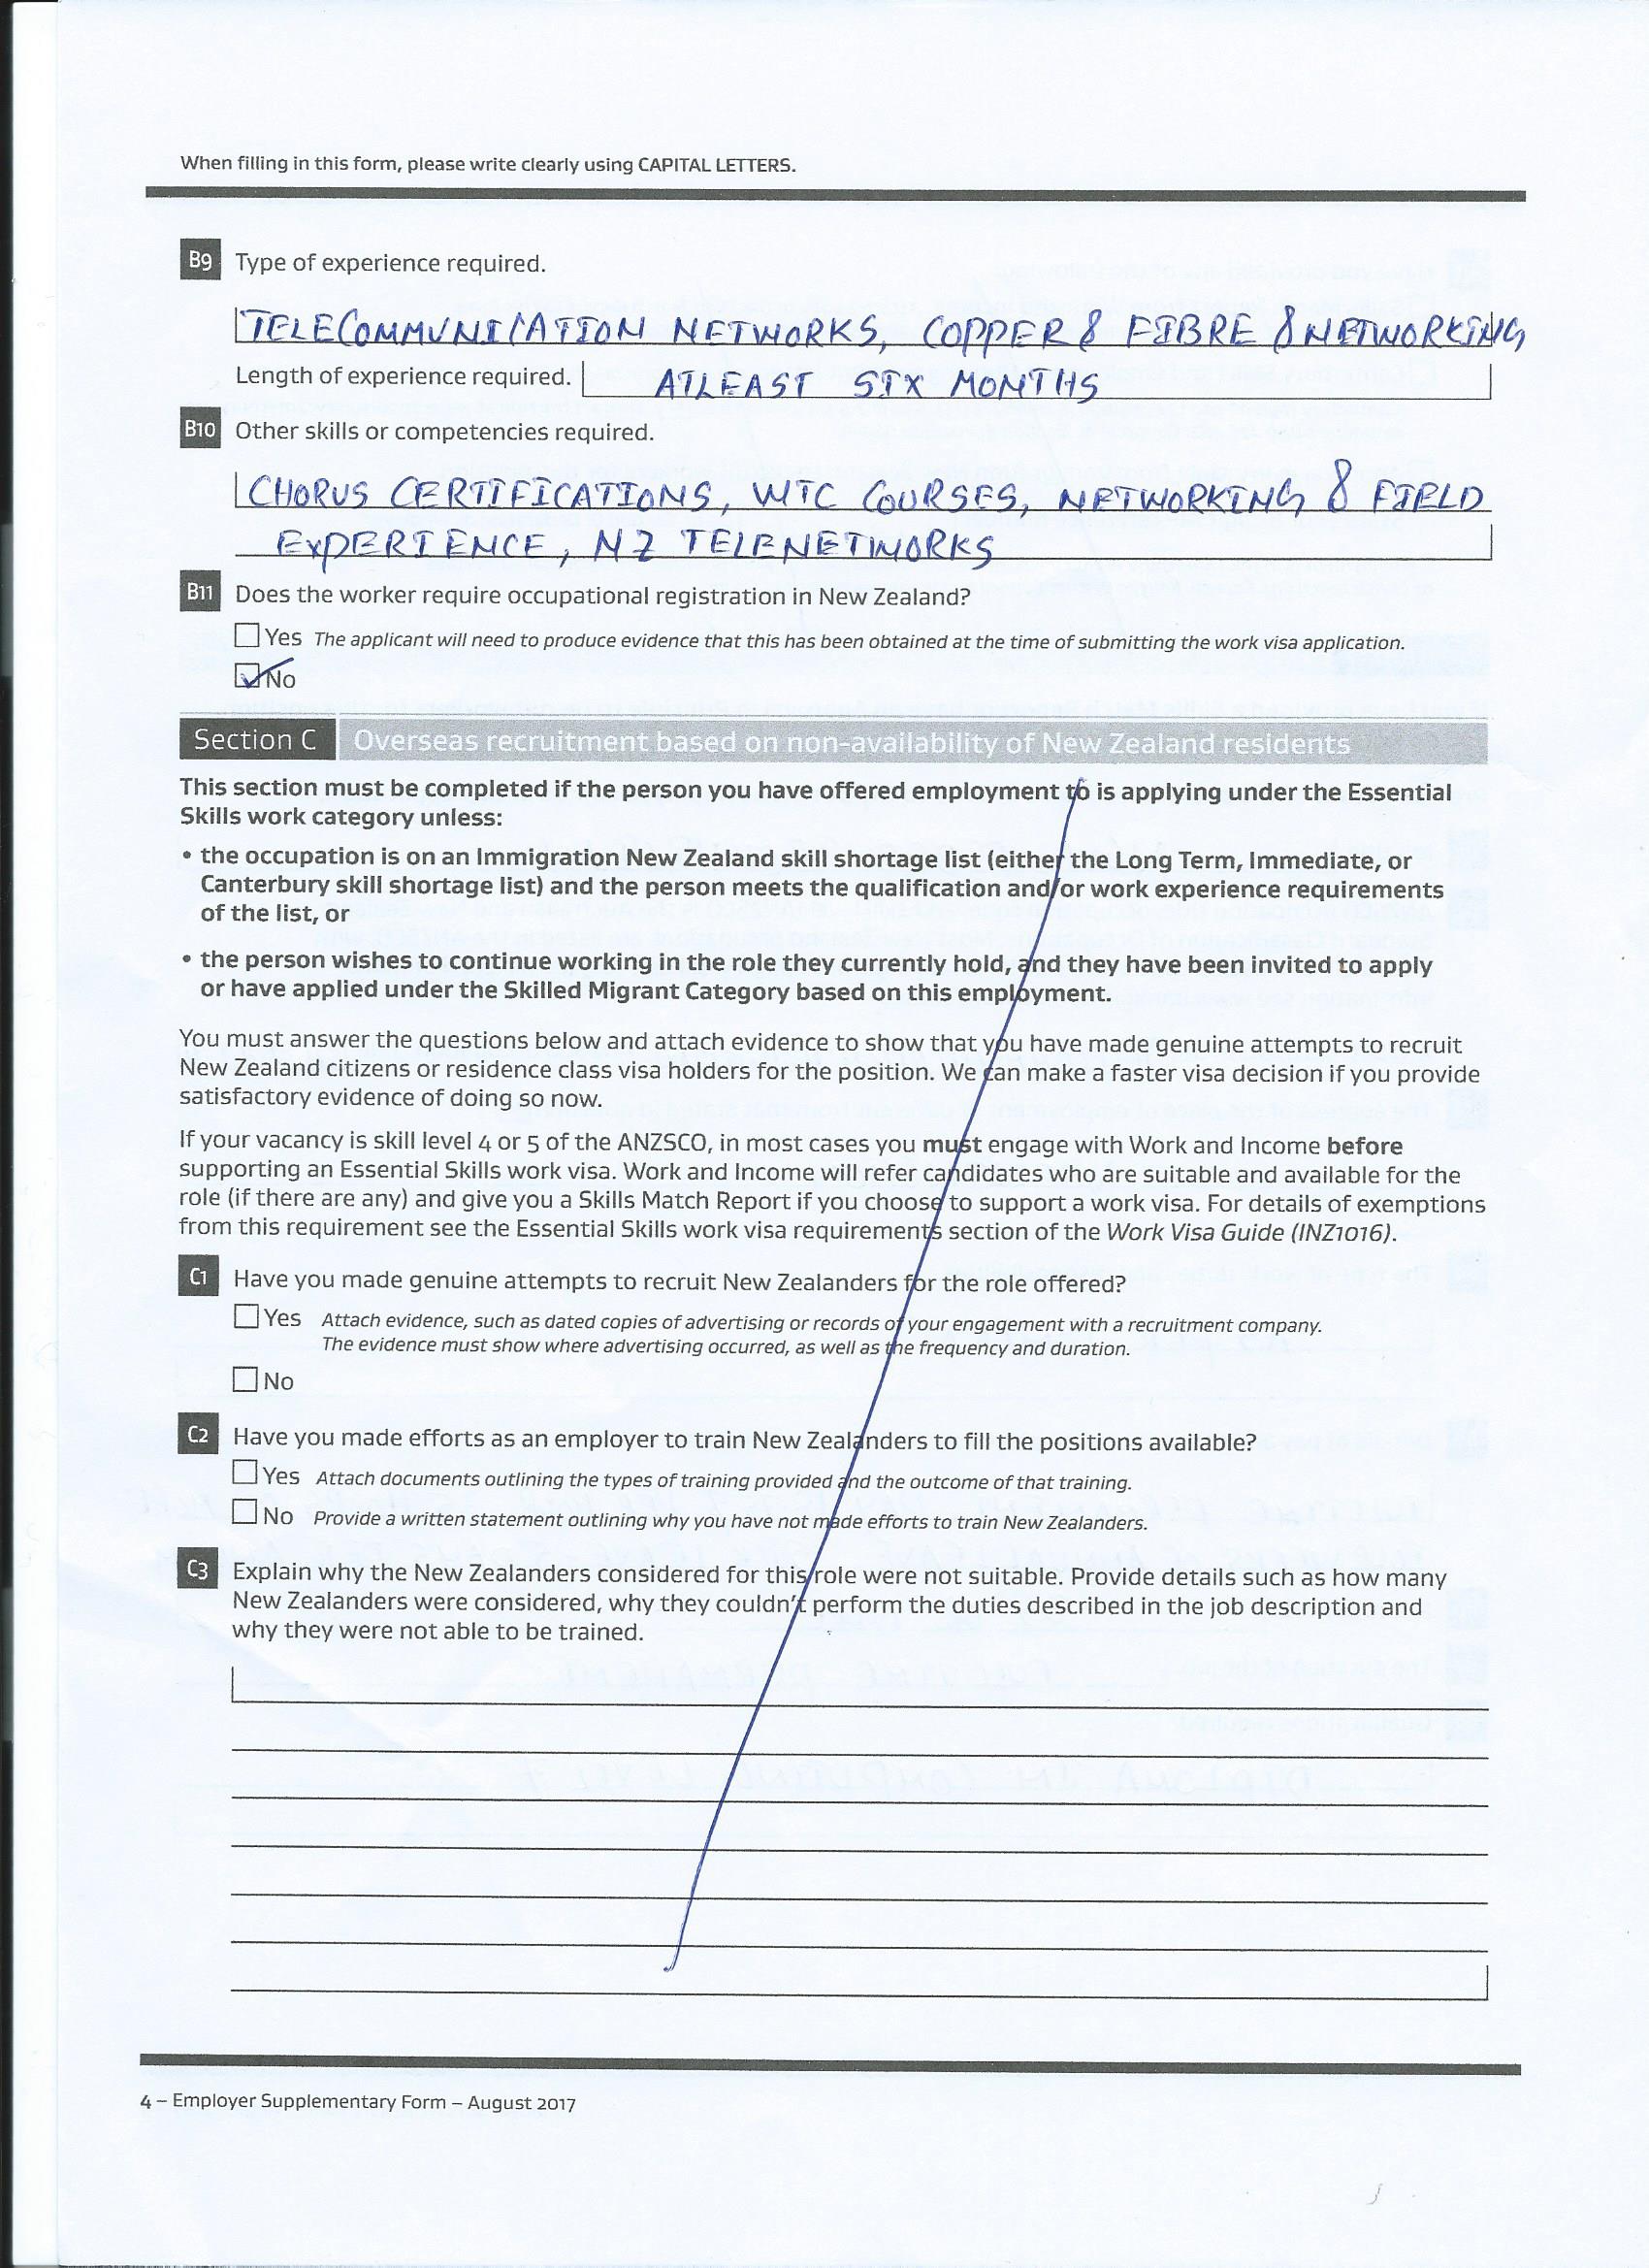 When filling in this form, please write clearly using CAPITAL LETTERS.
B9 Type of experience required.
TELECOMMUNICATION NETWORKS, COPPER & FIBRE & NETWORKING
Length of experience required. ATLEAST SIX MONTHS
B10 Other skills or competencies required.
CHORUS CERTIFICATIONS, WTC COURSES, NETWORKING & FIELD
EXPERIENCE, NZ TELENETWORKS
B11 Does the worker require occupational registration in New Zealand?
Yes The applicant will need to produce evidence that this has been obtained at the time of submitting the work visa application.
No
Section C Overseas recruitment based on non-availability of New Zealand residents
This section must be completed if the person you have offered employment to is applying under the Essential
Skills work category unless:
• the occupation is on an Immigration New Zealand skill shortage list (either the Long Term, Immediate, or
Canterbury skill shortage list) and the person meets the qualification and/or work experience requirements
of the list, or
• the person wishes to continue working in the role they currently hold, and they have been invited to apply
or have applied under the Skilled Migrant Category based on this employment.
You must answer the questions below and attach evidence to show that you have made genuine attempts to recruit
New Zealand citizens or residence class visa holders for the position. We can make a faster visa decision if you provide
satisfactory evidence of doing so now.
If your vacancy is skill level 4 or 5 of the ANZSCO, in most cases you must engage with Work and Income before
supporting an Essential Skills work visa. Work and Income will refer candidates who are suitable and available for the
role (if there are any) and give you a Skills Match Report if you choose to support a work visa. For details of exemptions
from this requirement see the Essential Skills work visa requirements section of the Work Visa Guide (INZ1016).
C1 Have you made genuine attempts to recruit New Zealanders for the role offered?
Yes Attach evidence, such as dated copies of advertising or records of your engagement with a recruitment company.
The evidence must show where advertising occurred, as well as the frequency and duration.
No
C2 Have you made efforts as an employer to train New Zealanders to fill the positions available?
Yes Attach documents outlining the types of training provided and the outcome of that training.
No Provide a written statement outlining why you have not made efforts to train New Zealanders.
C3 Explain why the New Zealanders considered for this role were not suitable. Provide details such as how many
New Zealanders were considered, why they couldn't perform the duties described in the job description and
why they were not able to be trained.
4 – Employer Supplementary Form – August 2017